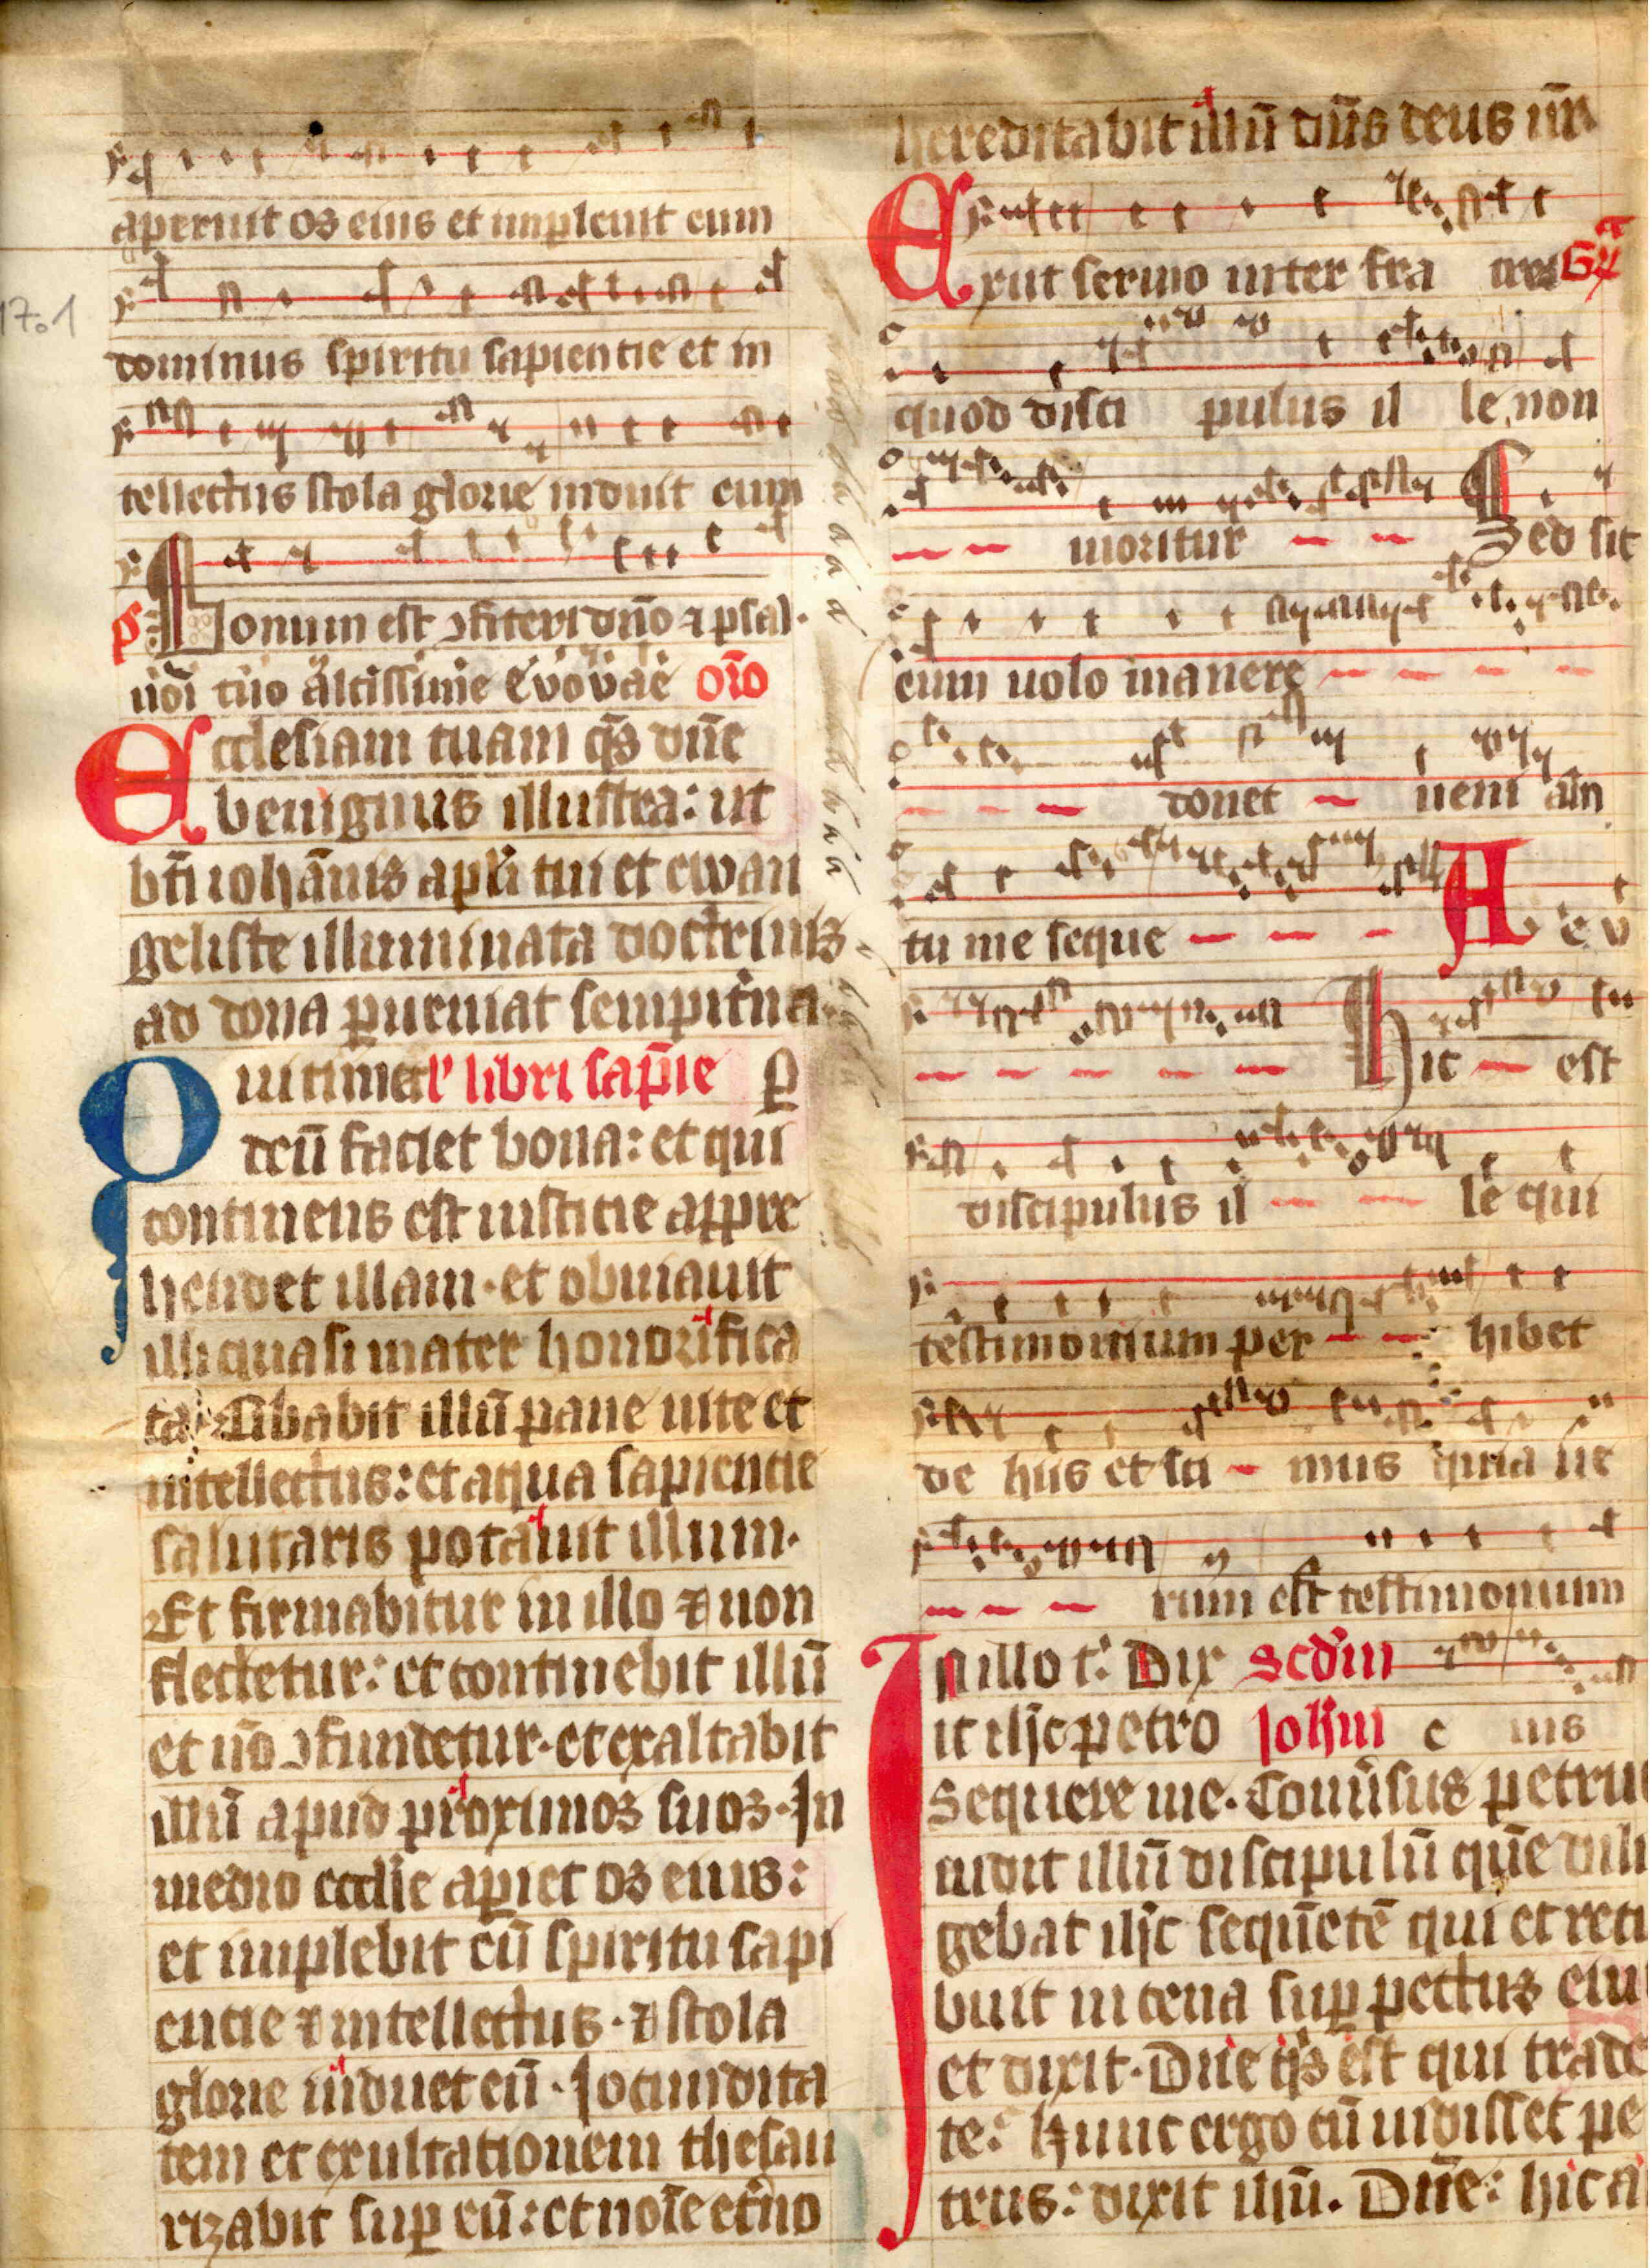 aperuit os eius et impleuit eum
17.1
dominus spiritu sapientie et in
tellectus stola glorie induit eum
p̄s Bonum est ɔfiteri dn̄o ⁊ psal·
nōi tuo altissime Evovae or̄o
Ecclesiam tuam q̄s dn̄e
benignus illustra: ut
bt̄i ioh̄annis apl̄i tui et ewan
geliste illuminata doctrinis
ad dona ꝑueniat sempit̄na·
Qui timet l' libri sap̄ie ꝑ
deū faciet bona: et qui
continens est iusticie appre
hendet illam· et obuiauit
illi quasi mater honorifica
ta· Cibabit illū pane uite et
intellectus: et aqua sapientie
salutaris potauit illum·
Et firmabitur in illo ⁊ non
flectetur: et continebit illū
et nō ɔfundetur· et exaltabit
illū apud proximos suos· In
medio eccl̄ie aꝑiet os eius:
et implebit eū spiritu sapi
encie ⁊ intellectus· ⁊ stola
glorie induet eū· Iocundita
tem et exultationem thesau
rizabit suꝑ eū: et noīe et̄no
hereditabit illū dn̄s deus nr̄
Exiit sermo inter fra tres Gͣ
quod disci pulus il le non
moritur Sed sic
eum uolo manere
donet ueni am
tu me seque A e v
Hic est
discipulus il le qui
testimonium per hibet
de hiis et sci mus quia ue
rum est testimonium
In illo t̄: Dix scd̄m
it ih̄c petro Ioh̄m e ius
Sequere me. Conūsus petru
uidit illū discipulū quē dili
gebat ih̄c sequētē qui et recu
buit in cena suꝑ pectus eiu
et dixit· Dn̄e q̄s est qui trade
te: Hunc ergo cū uidisset pe
trus: dixit ih̄u. Dn̄e: hic a